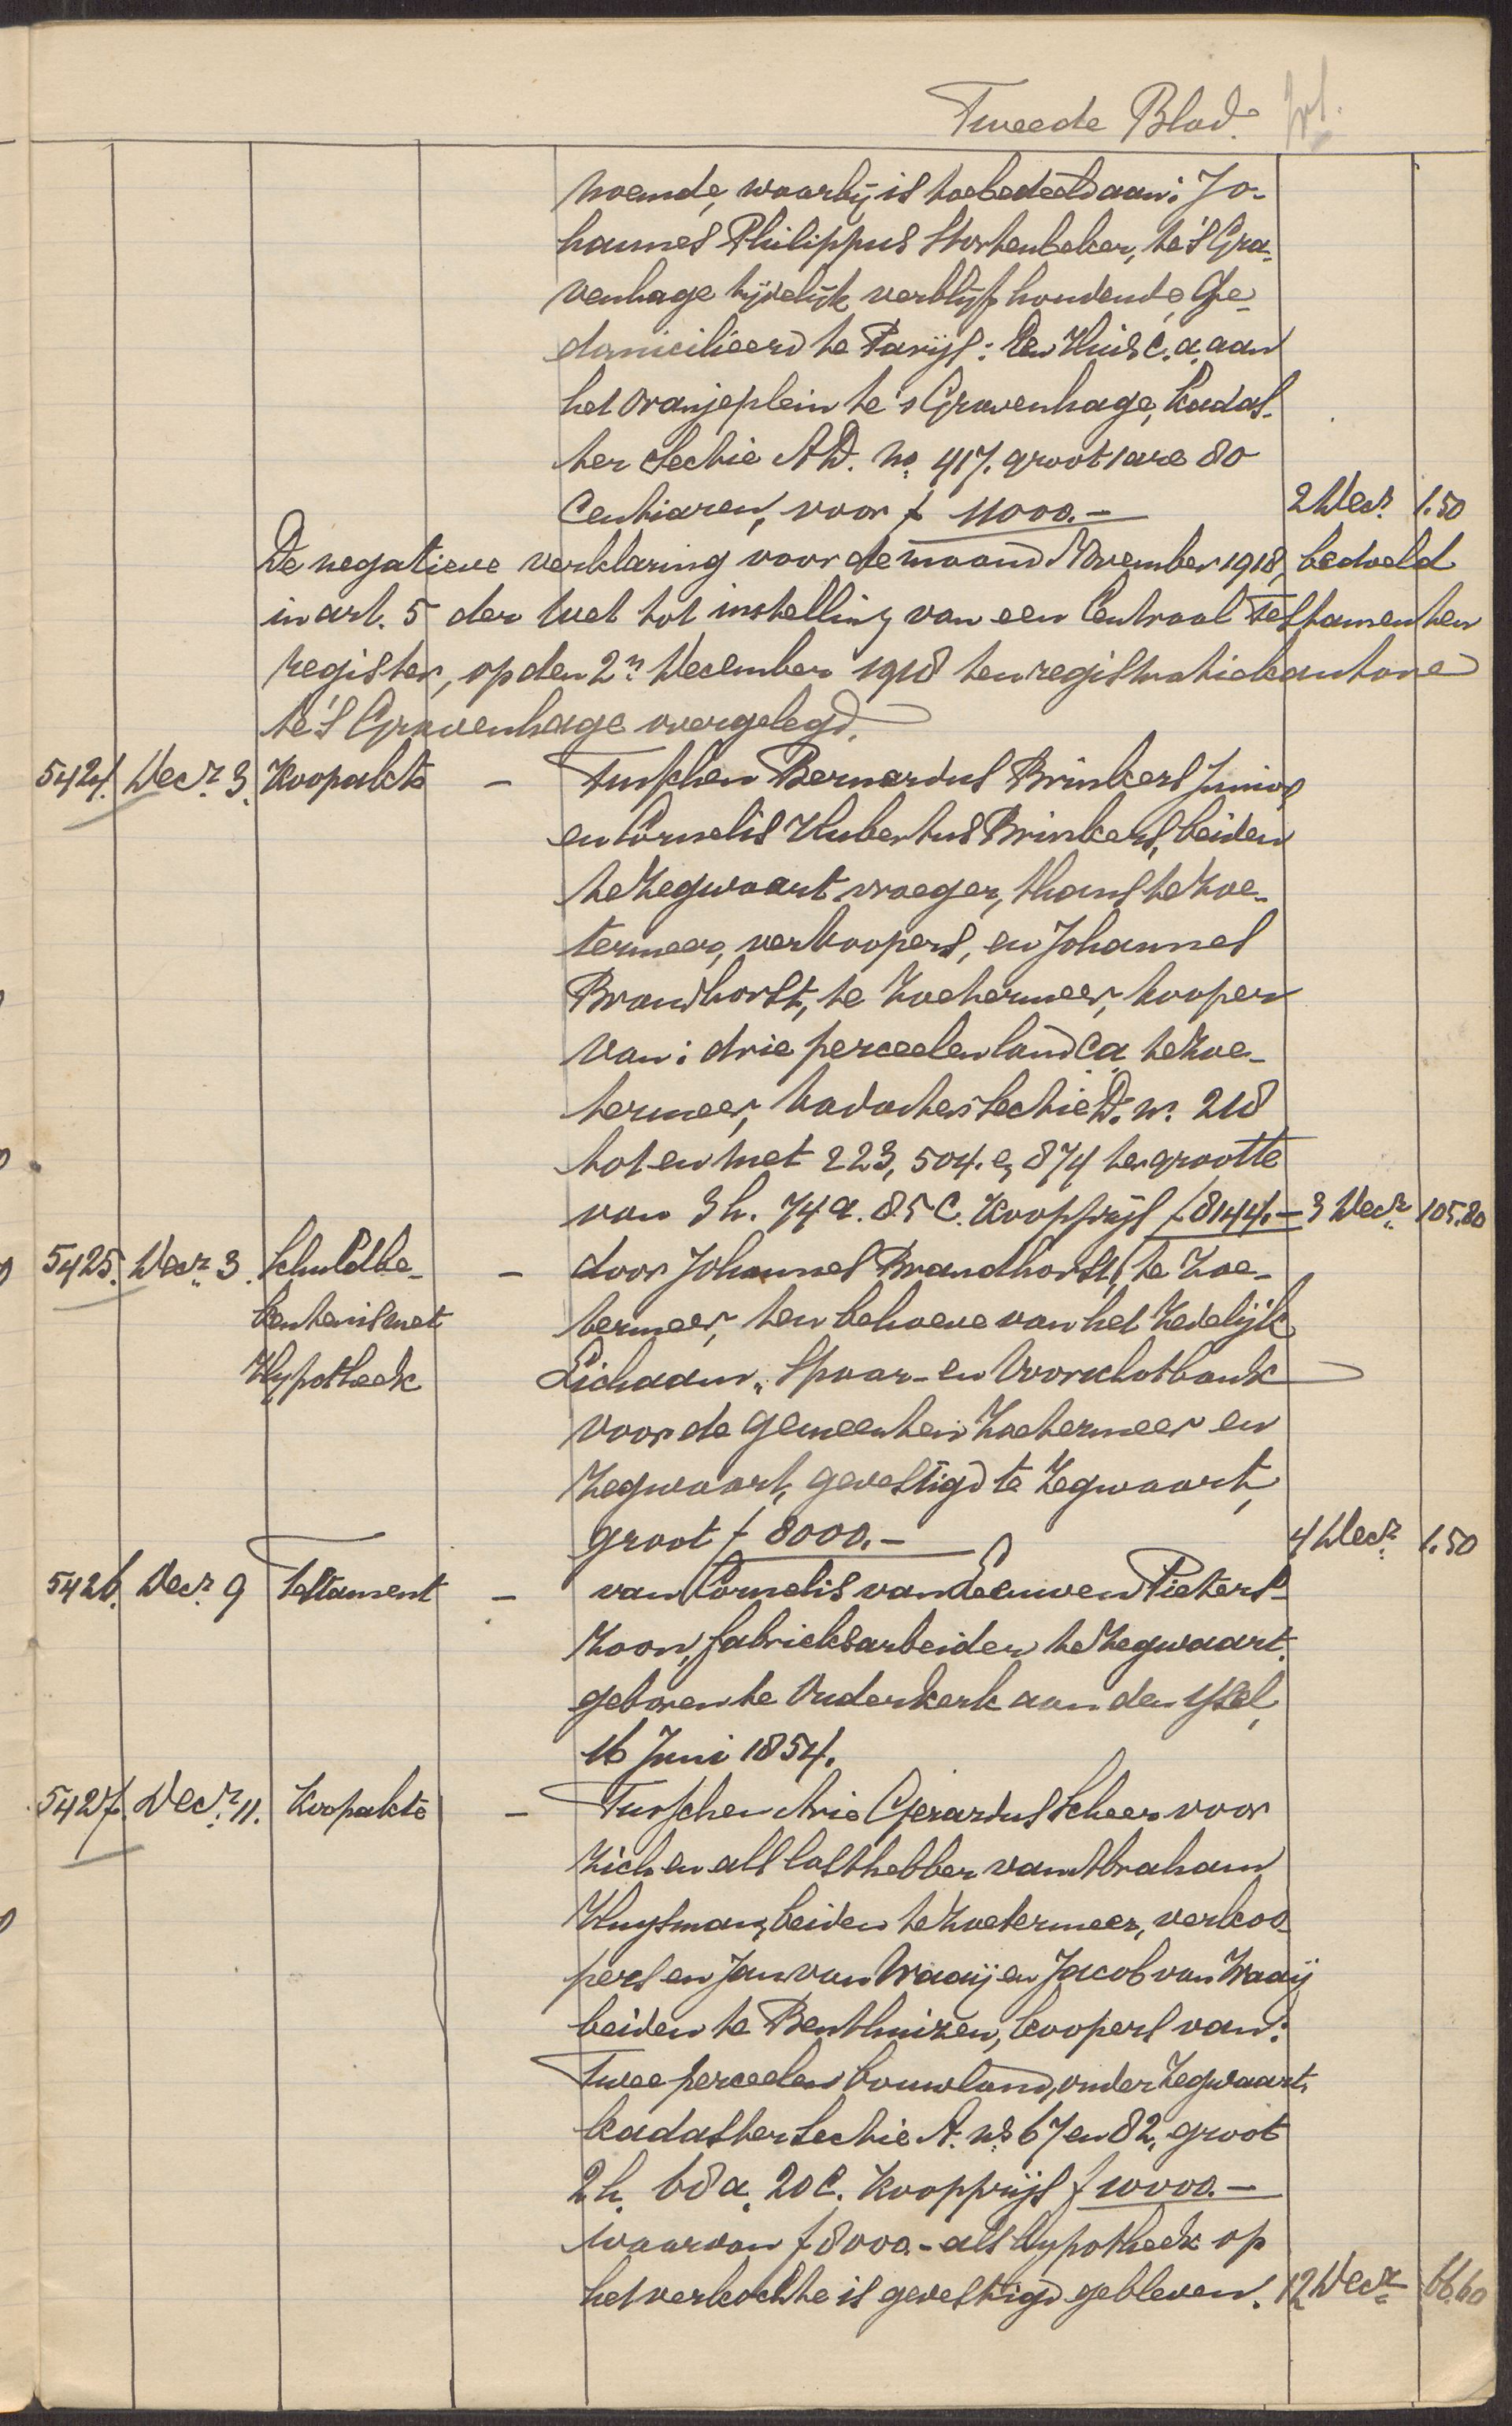 Tweede Blad.
noemde, waarbij is toebedeeld aan: Jo-
hannes Philippus Stortenbeker, te 's Gra-
venhage tijdelijk verblijf houdende, Ge-
domicilieerd te Parijs: Een Huis c.a. aan
het Oranjeplein te 's Gravenhage, Kadas-
ter Sectie AD. no. 417. groot 1 are 80
Centiaren, voor f 11000.- 2 Decr. 1.50
De negatieve verklaring voor de maand November 1918, bedoeld
in art. 5 der Wet tot instelling van een Centraal Testamenten
register, op den 2n December 1918 ten registratiekantore
te 's Gravenhage overgelegd.
5424. Decr. 3. Koopakte - Tusschen Bernardus Brinkers Junior
en Cornelis Hubertus Brinkers, beiden
te Zegwaart vroeger, thans te Zoe-
termeer, verkoopers, en Johannes
Brandhorst, te Zoetermeer, kooper
van: drie perceelen land ca te Zoe-
termeer, kadaster Sectie D. no. 218
tot en met 223, 504. en 874 ter grootte
van 3 h. 74 a. 85 c. Koopprijs f 8144.- 3 Decr. 105.80
5425. Decr. 3. Schuldbe- - door Johannes Brandhorst, te Zoe-
kentenis met termeer, ten behoeve van het Zedelijk
Hypotheek Lichaam „Spaar- en Voorschotbank
voor de gemeenten Zoetermeer en
Zegwaart, gevestigd te Zegwaart,
groot f 8000.- 4 Decr. 1.50
5426. Decr. 9 Testament - van Cornelis van Leeuwen Pieters-
zoon, fabrieksarbeider te Zegwaart.
geboren te Ouderkerk aan den IJsel,
16 Juni 1854.
5427. Decr. 11. Koopakte - Tusschen Arie Gerardus Scheer voor
zich en als lasthebber van Abraham
Huysman, beiden te Zoetermeer, verkoo-
pers en Jan van Waaij en Jacob van Waaij
beiden te Benthuizen, koopers van:
Twee perceelen bouwland, onder Zegwaart,
kadaster Sectie A. ns 67 en 82, groot
2 h. 68 a. 20 c. Koopprijs f 10000.-
waarvan f 8000.- als hypotheek op
het verkochte is gevestigd gebleven. 12 Decr. 66.60